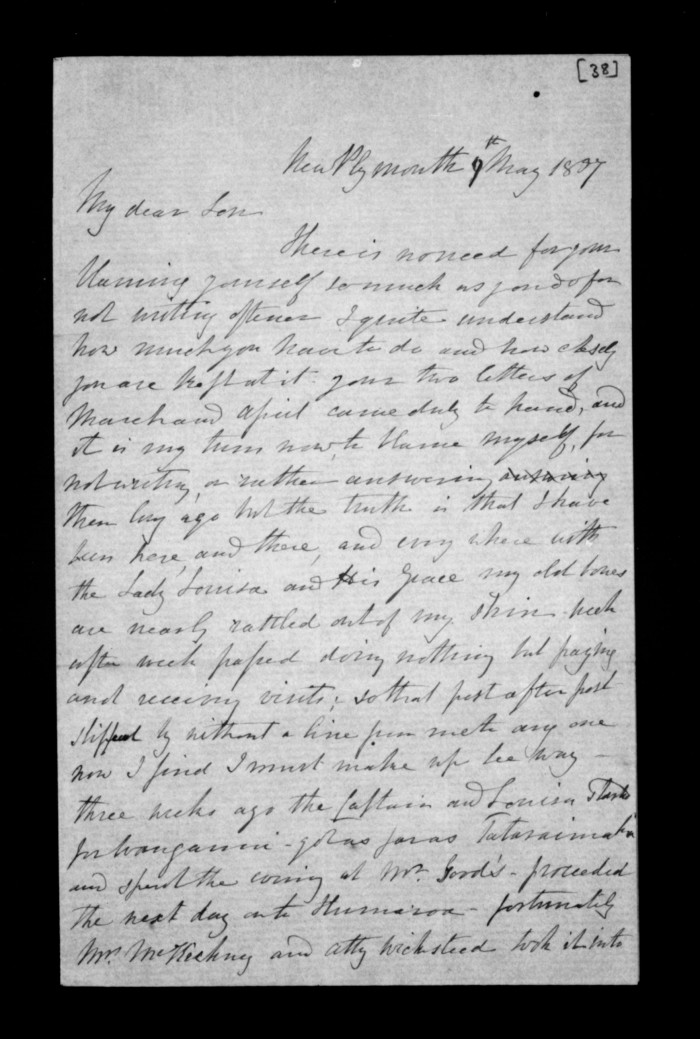 [38]
New Plymouth 9th May 1857
My dear Son
There is no need for your
blaming yourself so much as you do for
not writing oftener I quite understand
how much you have to do and how closely
you are kept at it. your two letters of
March and April came duly to hand, and
it is my turn now, to blame myself, for
not writing, or rather answering answering
them long ago but the truth is that I have
been here, and there, and every where with
the Lady Louisa and His Grace my old bones
are nearly rattled out of my skin. week
after week passed doing nothing but paying
and receiving visits; so that post after post
slipped by without a line from me to any one
now I find I must make up lee way —
three weeks ago the Captain and Louisa
for Wanganui - got as far as Tataraimaka
and spent the evening at Mr. - proceeded
the next day on to - fortunately
Mrs. and took it into